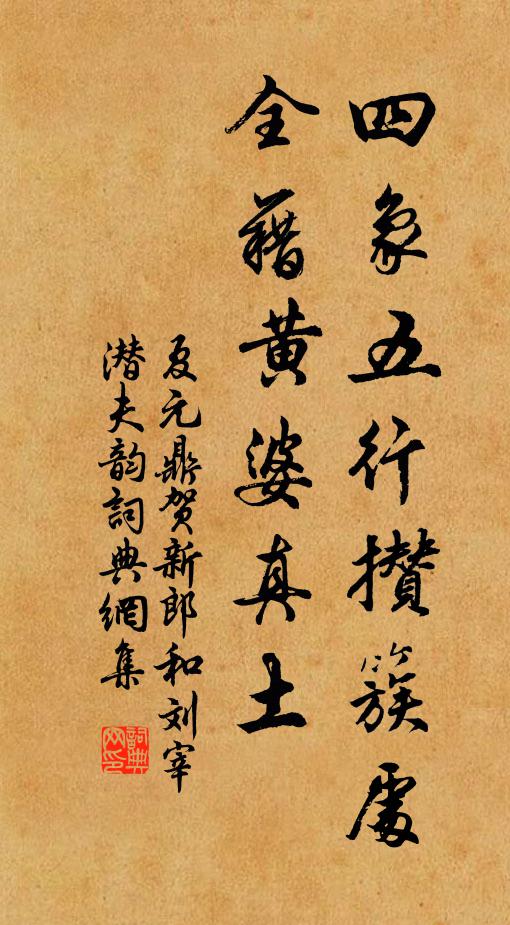 四象五行攅簇處
全藉黄婆真土
夏元鼎贺新郎和刘宰
潜夫韵詞典網集
詞典网印